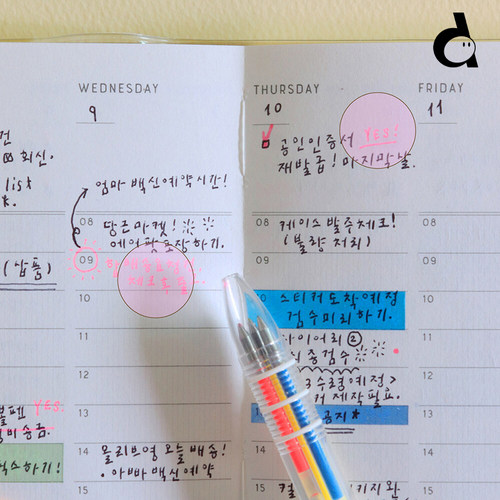 WEDNESDAY
THURSDAY
FRIDAY
9
10
11
회신.
list
엄마 백신예약시간!
공인인증서 YES!
재발급! 마지막날.
08
당근마켓!
에어팟포장하기.
08
케이스 발주체크!
(불량 처리)
08
09
(납품)
09
10
스티커도착예정
검수미리하기.
10
11
다이어리 ②
11
12
12
수령예정>
제작 필요.
13
펜 YES.
비송금.
공지*
13
14
올리브영 오늘배송!
· 아빠백신예약
14
하기!
15
15
15